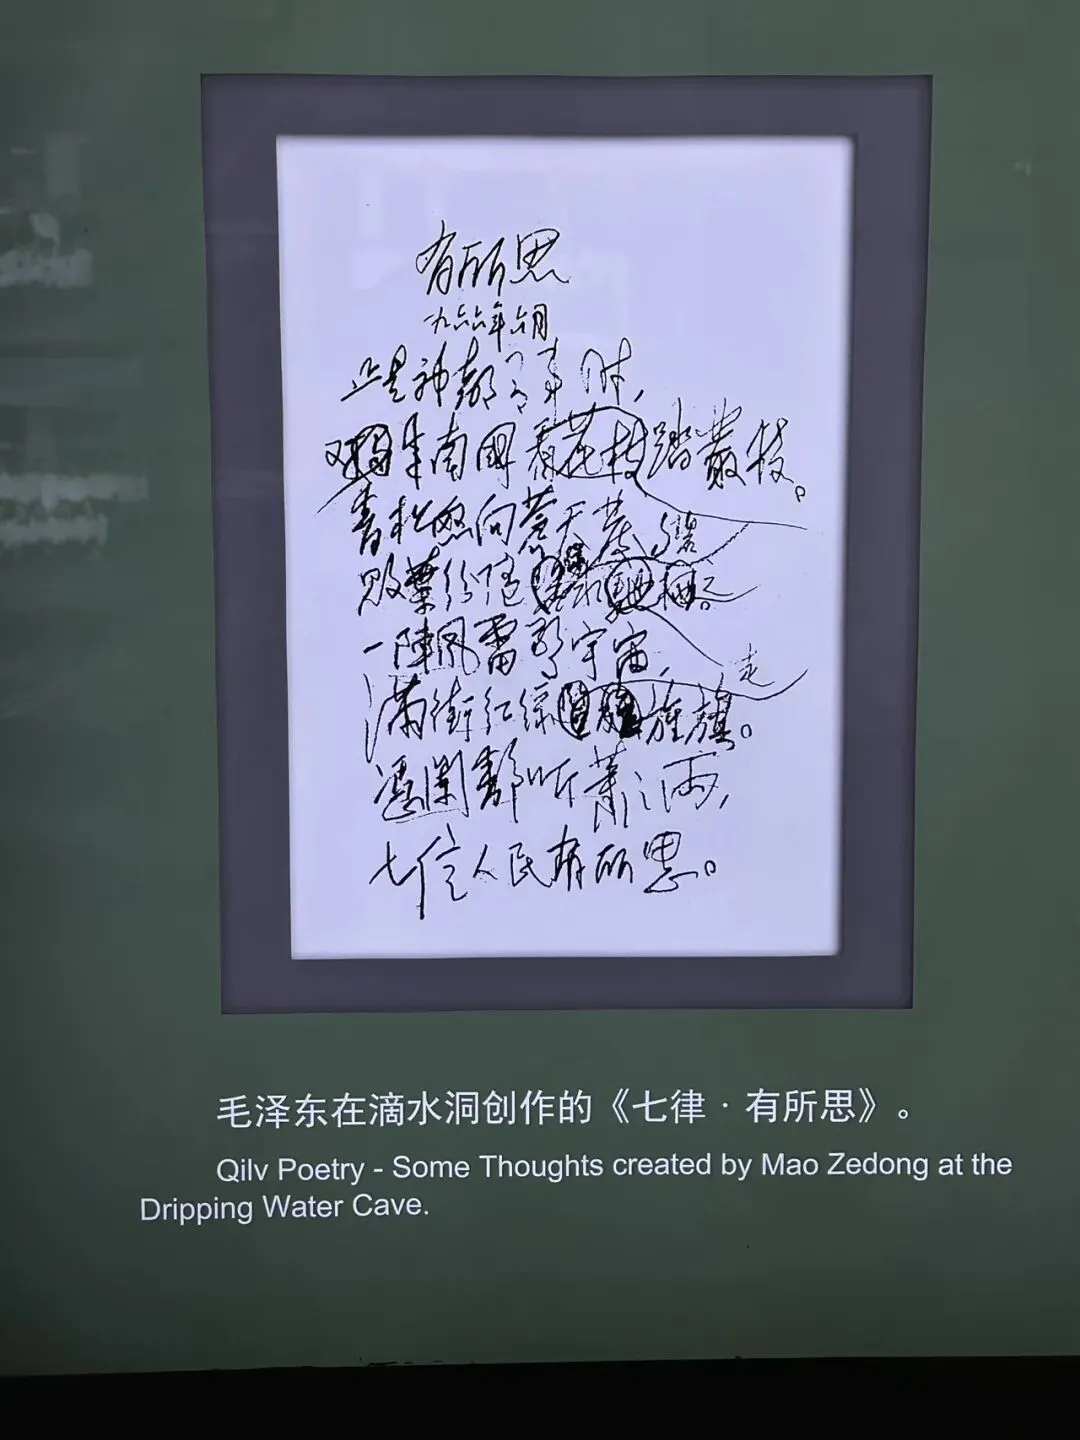 有所思
一九六六年六月
正是神都有事时，
又来南国踏丛枝。
青松怒向苍天发，
败叶纷随碧水驰。
一阵风雷惊宇宙，
满街红绿走旌旗。
凭阑静听萧々雨，
七亿人民有所思。
毛泽东在滴水洞创作的《七律·有所思》。
Qilv Poetry - Some Thoughts created by Mao Zedong at the
Dripping Water Cave.